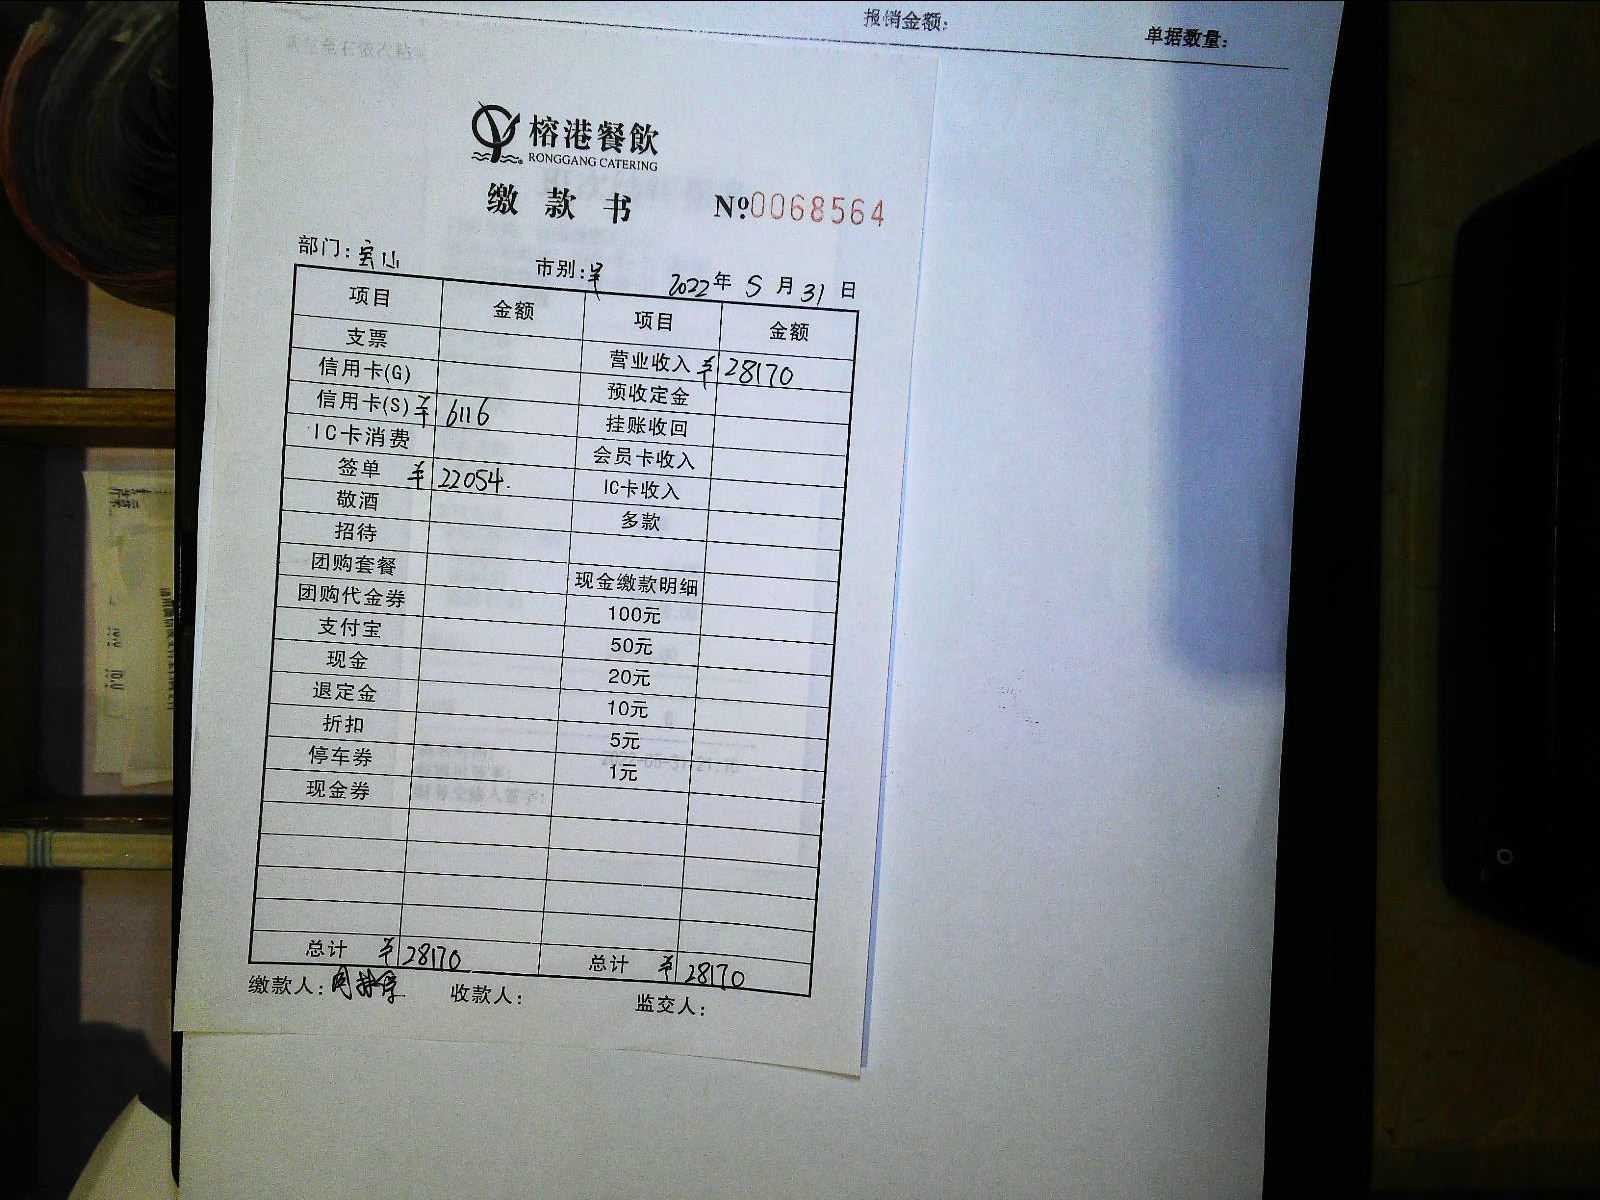 报销金额:
单据数量:
榕港餐飲
RONGGANG CATERING
缴款书 №0068564
部门: 宝山 市别: 2022年 5月31日
项目 金额 项目 金额
支票 营业收入 ¥28170
信用卡(G) 预收定金
信用卡(S) ¥6116 挂账收回
IC卡消费 会员卡收入
签单 ¥22054. IC卡收入
敬酒 多款
招待
团购套餐 现金缴款明细
团购代金券 100元
支付宝 50元
现金 20元
退定金 10元
折扣 5元
停车券 1元
现金券
总计 ¥28170 总计 ¥28170
缴款人: 收款人: 监交人: